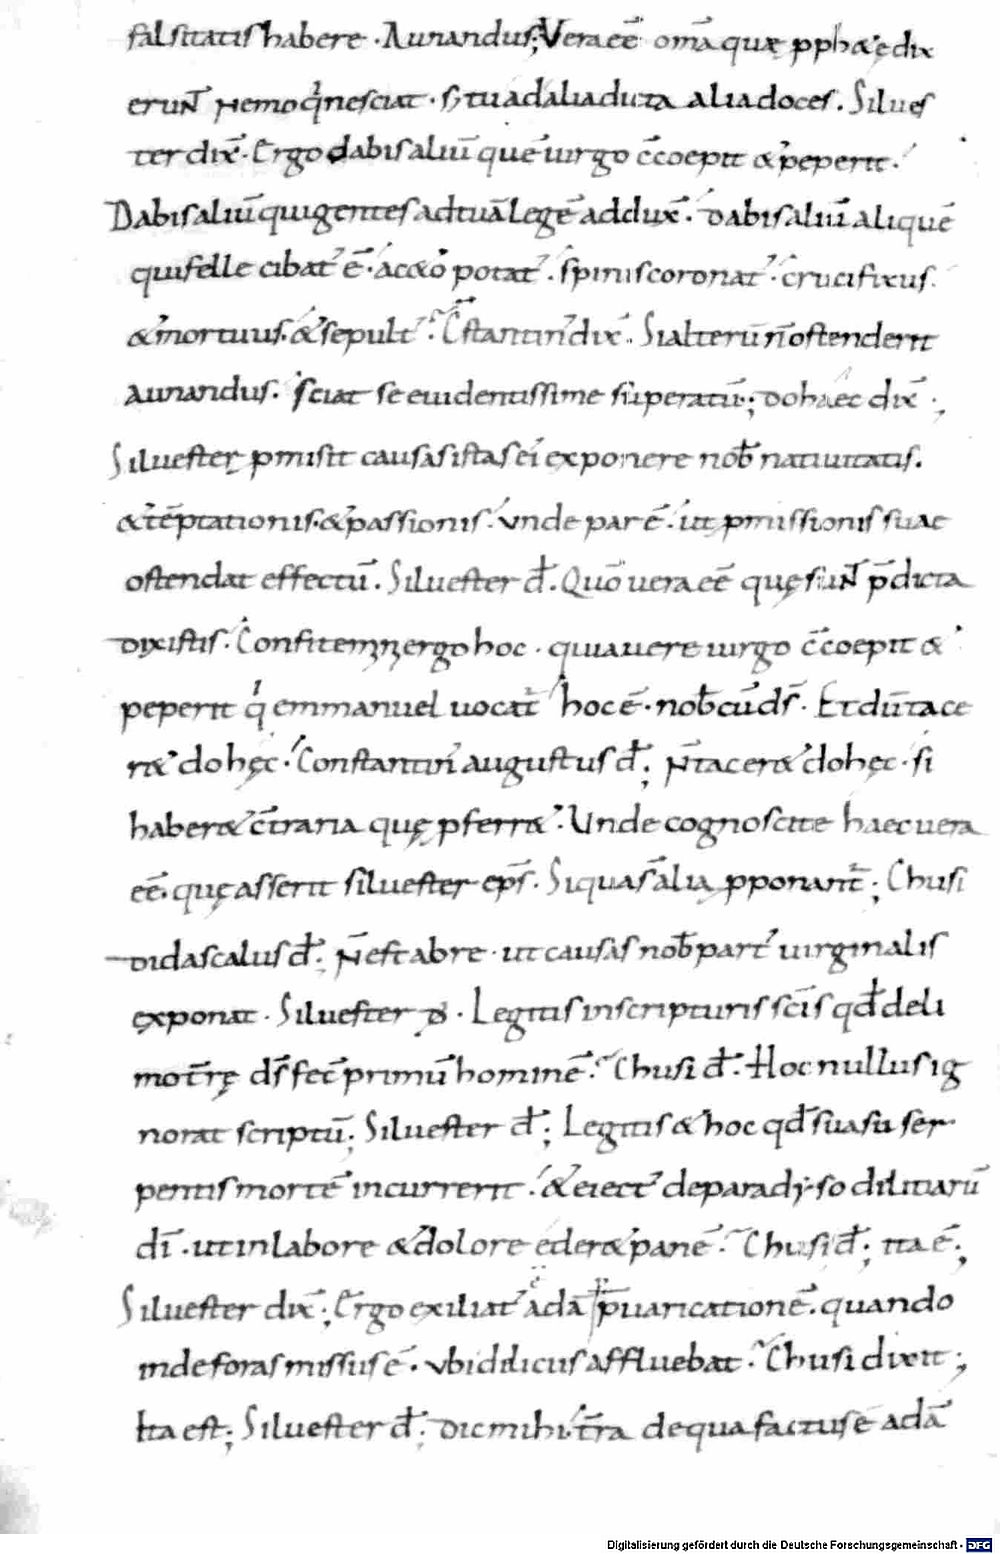 falsitatis habere. Aunandus; Vera eē om̄a quę ꝓphaę dix
erunt nemo qi nesciat. sꝫ tu ad alia ducta alia doces. Silues
ter dix̄. Ergo dabis aliū quē uirgo c̄coepit & peperit.
Dabis aliū qui gentes ad tuā legē addux̄. dabis aliū aliquē
qui felle cibatꝰ ē. acc&o potatꝰ. spinis coronatꝰ. crucifixus.
& mortuus. & sepultꝰ. C̄stantinꝰ dix̄. Si alterū n̄ ostenderit
Aunandus. sciat se euidentissime superatū; Dohaec dix̄.
Siluester, ꝓmisit causas istas ei exponere nob̄ natiuitatis.
& tēptationis. & passionis. Vnde par ē. ut ꝓmissionis suae
ostendat effectū. Siluester đ. Quō uera eē quę sunt p̄dicta
dixistis. Confitemini ergo hoc. quia uere uirgo c̄coepit &
peperit qi emmanuel uocat̄ hoc ē. nob̄cū ds̄. Et dū tace
r& dohęc. Constantinꝰ augustus đ; N̄ tacer& dohęc. si
haber& c̄traria quę ꝓferr&. Unde cognoscite haec uera
eē. quę asserit siluester ep̄s. Si quas alia ꝓponant̄; Chusi
didascalus đ; N̄ est abre. ut causas nob̄ partꝰ uirginalis
exponat. Siluester đ. Legitis in scripturis sc̄is qđ de li
mo t̄rę ds̄ fec̄ primū hominē. Chusi đ. Hoc nullus ig
norat scriptū; Siluester đ; Legitis & hoc qđ suasu ser
pentis mortē incurrerit. & eiectꝰ de paradiso dilitiarū
dī. ut in labore & dolore eder& panē. Chusi đ; ita ē;
Siluester dix̄; Ergo exiliatꝰ ē adā p̄uaricationē. quando
inde foras missus ē. Vbi dilicus affluebat. Chusi dixit;
Ita est; Siluester đ; Dic mihi. t̄ra de qua factus ē adā
Digitalisierung gefördert durch die Deutsche Forschungsgemeinschaft - DFG